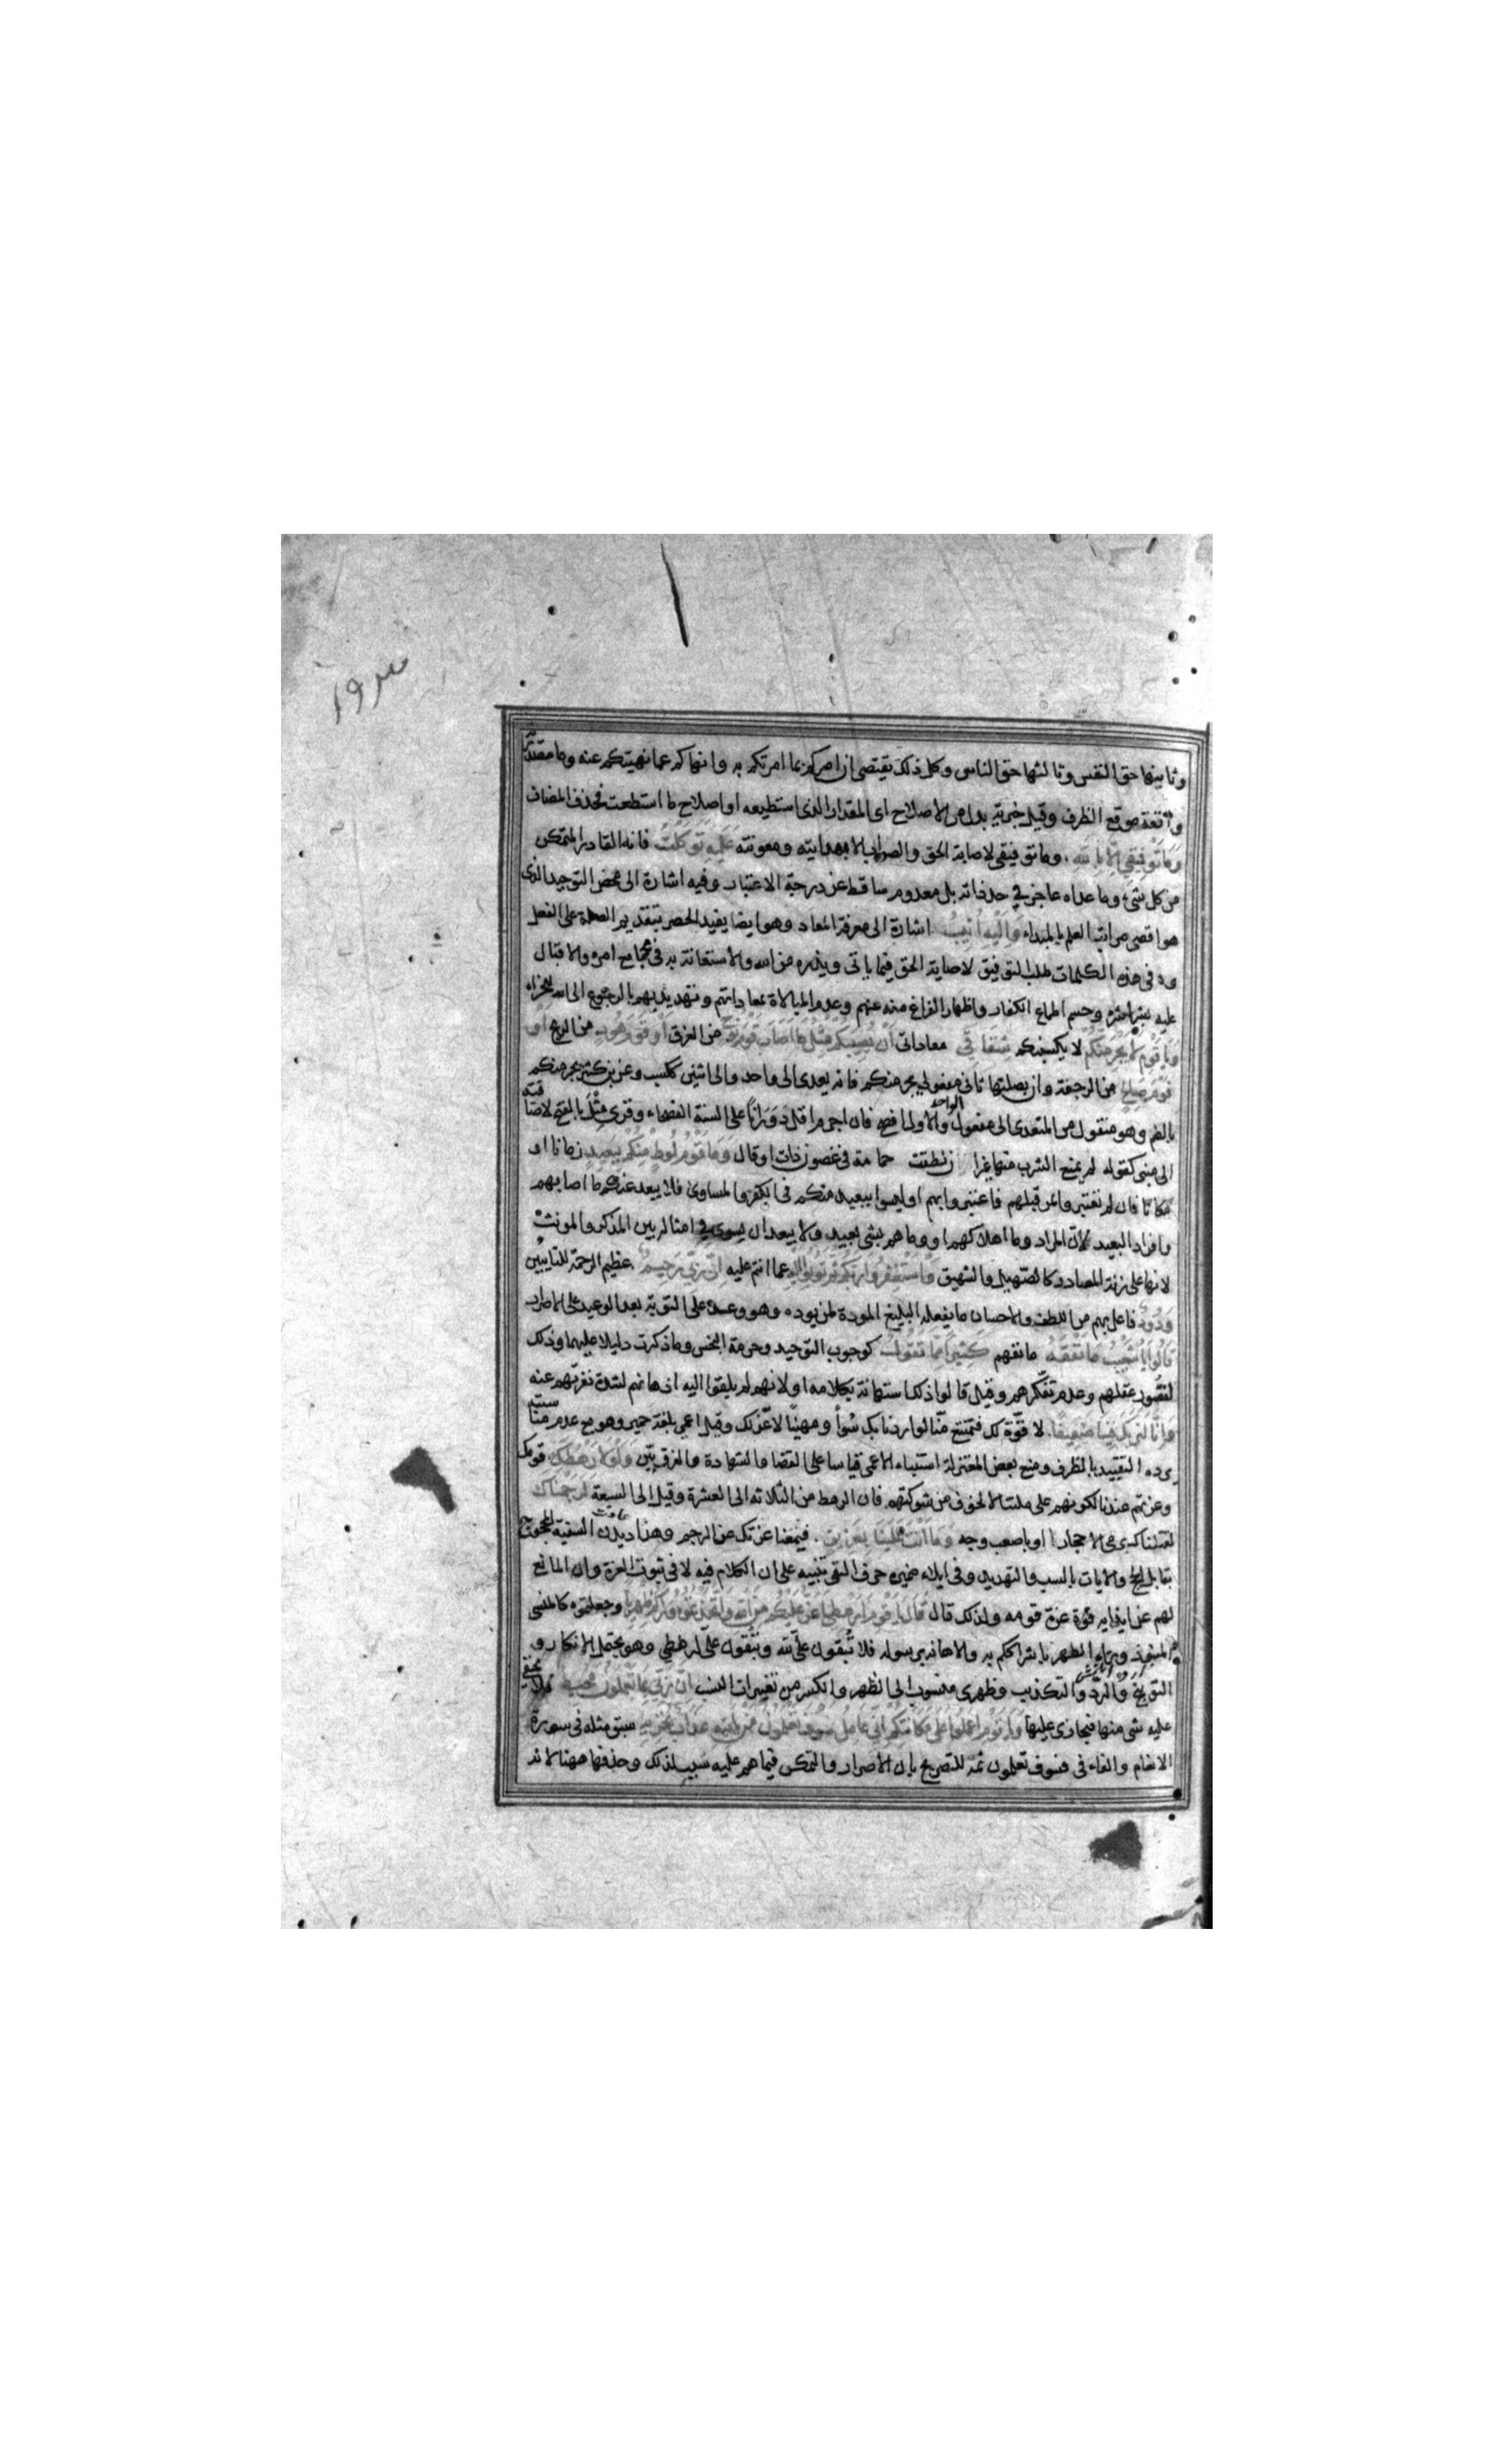 وثانيها حق النفس وثالثها حق الناس وكل ذلك يقتضي ان امركم بما امرتكم به وانهاكم عما نهيتكم عنه وما مصدرية
واقعة موقع الظرف وقيل خبرية بدل من الاصلاح اى المقدار الذى استطيعه او اصلاح ما استطعت فحذف المضاف
وَمَا تَوْفِيقِي اِلَّا بِاللهِ وما توفيقى لاصابة الحق والصواب الا بهدايته ومعونته عَلَيْهِ تَوَكَّلْتُ فانه القادر المتمكن
من كل شئ وما عداه عاجز في حد ذاته بل معدوم ساقط عن درجة الاعتبار وفيه اشارة الى محض التوحيد الذى
هو اقصى مراتب العلم بالمبداء وَاِلَيْهِ اُنِيبُ اشارة الى معرفة المعاد وهو ايضا يفيد الحصر بتقديم الصلة على الفعل
وفى هذه الكلمات طلب التوفيق لاصابة الحق فيما ياتى ويذره من الله والاستعانة به فى مجامع امره والاقبال
عليه بشراشره وحسم اطماع الكفار واظهار الفراغ منه عنهم وعدم المبالاة بمعاداتهم وتهديدهم بالرجوع الى الله للجزاء
وَيَا قَوْمِ لَا يَجْرِمَنَّكُمْ لا يكسبنكم شِقَاقِي معاداتى اَنْ يُصِيبَكُمْ مِثْلُ مَا اَصَابَ قَوْمَ نُوحٍ من الغرق اَوْ قَوْمَ هُودٍ من الريح اَوْ
قَوْمَ صَالِحٍ من الرجفة وان بصلتها ثانى مفعولى يجرمنكم فانه يعدى الى واحد والى اثنين ككسب وعن بن كثير يجرمنكم
بالضم وهو منقول من المتعدى الى مفعول الواحد والاول افصح فان اجرم اقل دَوَرَاناً على السنة الفصحاء وقرئ مِثْلَ بالفتح لاضافته
الى مبنى كقوله لم يمنع الشرب منها غير ان نطقت حمامة فى غصون ذات اوقال وَمَا قَوْمُ لُوطٍ مِنْكُمْ بِبَعِيدٍ زمانا او
مكانا فان لم تعتبروا بمن قبلهم فاعتبروا بهم او ليسوا ببعيد منكم فى الكفر والمساوى فلا يبعد عنكم ما اصابهم
وافراد البعيد لان المراد وما اهلاكهم او وما هم بشئ بعيد ولا يبعد ان يسوى فى امثاله بين المذكر والمونث
لانها على زنة المصادر كالصهيل والشهيق وَاسْتَغْفِرُوا رَبَّكُمْ ثُمَّ تُوبُوا اِلَيْهِ عما انتم عليه اِنَّ رَبِّي رَحِيمٌ عظيم الرحمة للتايبين
وَدُودٌ فاعل بهم من اللطف والاحسان ما يفعل البليغ المودة لمن يوده وهو وعد على التوبة بعد الوعيد على الاصرار
قَالُوا يَا شُعَيْبُ مَا نَفْقَهُ ما نفهم كَثِيرًا مِمَّا تَقُولُ كوجوب التوحيد وحرمة البخس وما ذكرت دليلا عليهما وذلك
لقصور عقلهم وعدم تفكرهم وقيل قالوا ذلك استهانة بكلامه او لانهم لم يلقوا اليه اذهانهم لشدة نفرتهم عنه
وَاِنَّا لَنَرَاكَ فِينَا ضَعِيفًا لا قوة لك فتمتنع منا لو اردنا بك سُوأ ومهينا لا عز لك وقيل اعمى بلغة حمير وهو مع عدم مناسبته
يرده التقييد بالظرف ومنع بعض المعتزلة استنباء الاعمى قياسا على القضا والشهادة والفرق بين وَلَوْلَا رَهْطُكَ قومك
وعزتهم عندنا لكونهم على ملتنا لا لخوف من شوكتهم فان الرهط من الثلاثة الى العشرة وقيل الى السبعة لَرَجَمْنَاكَ
لقتلناك برمى الاحجار او باصعب وجه وَمَا اَنْتَ عَلَيْنَا بِعَزِيزٍ فيمنعنا عزتك عن الرجم وهذا ديدن السفيه المحجوج
يقابل الحجج والايات بالسب والتهديد وفى ايلاء ضميره حرف النفى تنبيه على ان الكلام فيه لا فى ثبوت العزة وان المانع
لهم عن ايذايه قوة عزة قومه ولذلك قال قَالَ يَا قَوْمِ اَرَهْطِي اَعَزُّ عَلَيْكُمْ مِنَ اللهِ وَاتَّخَذْتُمُوهُ وَرَاءَكُمْ ظِهْرِيًّا وجعلتموه كالمنسى
المنبوذ وراء الظهر باشراككم به والاهانة برسوله فلا تُبقون على لله وتبقون على لرهطي وهو يحتمل الانكار و
التوبيخ والرد والتكذيب وظهرى منسوب الى الظهر والكسر من تغييرات النسب اِنَّ رَبِّي بِمَا تَعْمَلُونَ مُحِيطٌ فلا يخفى
عليه شى منها فيجازى عليها وَيَا قَوْمِ اعْمَلُوا عَلَى مَكَانَتِكُمْ اِنِّي عَامِلٌ سَوْفَ تَعْلَمُونَ مَنْ يَاْتِيهِ عَذَابٌ يُخْزِيهِ سبق مثله فى سورة
الانعام والفاء فى فسوف تعلمون ثمة للتصريح بان الاصرار والتمكن فيما هم عليه سبب لذلك وحذفها ههنا لانه